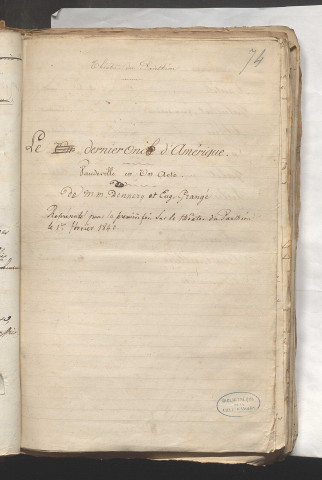 Théâtre du Panthéon
74
Le dernier oncle d'Amérique.
Vaudeville en Un Acte.
De MM. Dennery et Eug. Grangé
Représenté pour la première fois sur le théâtre du Panthéon
le 1er février 1841
BIBLIOTHÈQUE